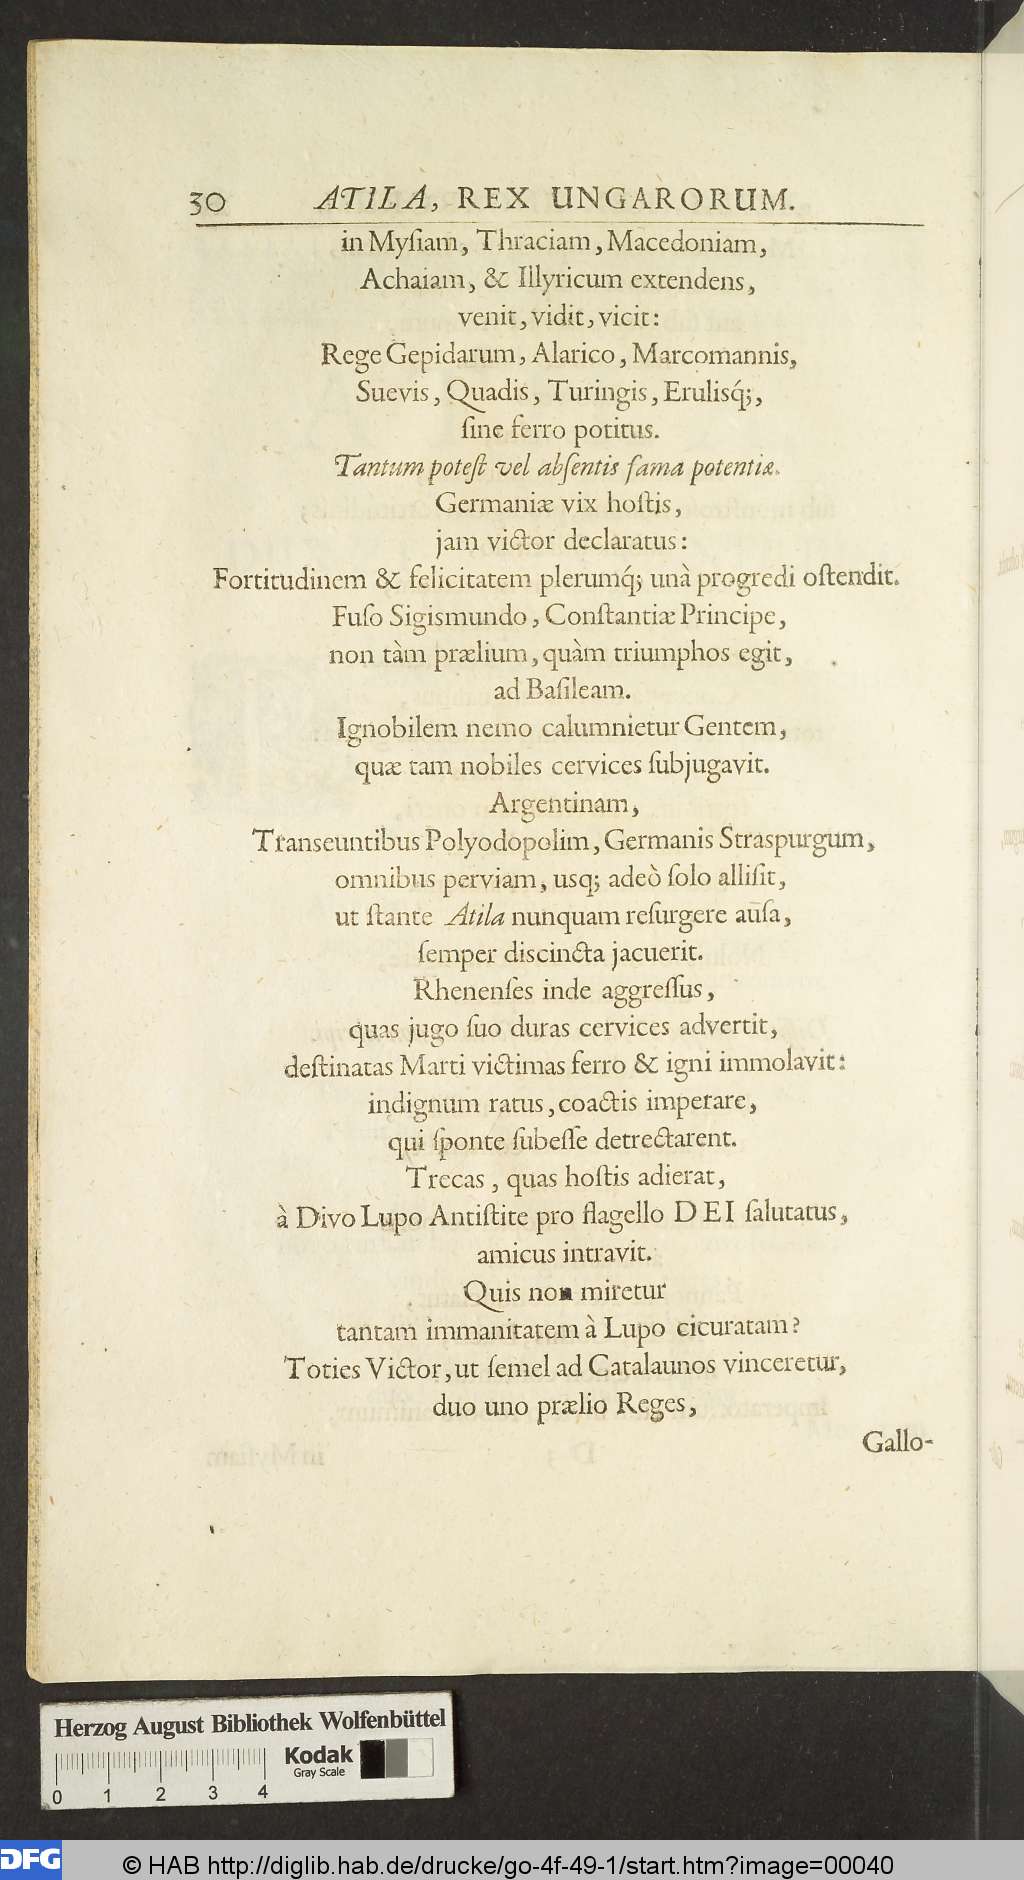 30 ATILA, REX UNGARORUM.
in Myſiam, Thraciam, Macedoniam,
Achaiam, & Illyricum extendens,
venit, vidit, vicit:
Rege Gepidarum, Alarico, Marcomannis,
Suevis, Quadis, Turingis, Erulisq́;,
ſine ferro potitus.
Tantum poteſt vel abſentis fama potentiæ.
Germaniæ vix hoſtis,
jam victor declaratus:
Fortitudinem & felicitatem plerumq́; unà progredi oſtendit.
Fuſo Sigismundo, Conſtantiæ Principe,
non tàm prælium, quàm triumphos egit,
ad Baſileam.
Ignobilem nemo calumnietur Gentem,
quæ tam nobiles cervices ſubjugavit.
Argentinam,
Transeuntibus Polyodopolim, Germanis Straspurgum,
omnibus perviam, usq; adeò ſolo alliſit,
ut ſtante Atila nunquam reſurgere auſa,
ſemper discincta jacuerit.
Rhenenſes inde aggreſſus,
quas jugo ſuo duras cervices advertit,
deſtinatas Marti victimas ferro & igni immolavit:
indignum ratus, coactis imperare,
qui ſponte ſubeſſe detrectarent.
Trecas, quas hoſtis adierat,
à Divo Lupo Antiſtite pro flagello DEI ſalutatus,
amicus intravit.
Quis non miretur
tantam immanitatem à Lupo cicuratam?
Toties Victor, ut ſemel ad Catalaunos vinceretur,
duo uno prælio Reges,
Gallo-
Herzog August Bibliothek Wolfenbüttel
Kodak
Gray Scale
0 1 2 3 4
DFG
© HAB http://diglib.hab.de/drucke/go-4f-49-1/start.htm?image=00040